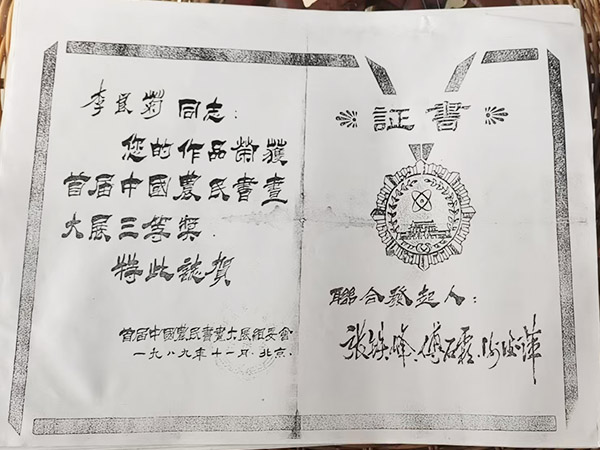 李 菊 同志:
您的作品榮獲
首届中國農民書畫
大展三等奬.
特此誌賀
首届中國農民書畫大展組委會
一九八九年十一月.北京.
証書
聯合發起人: